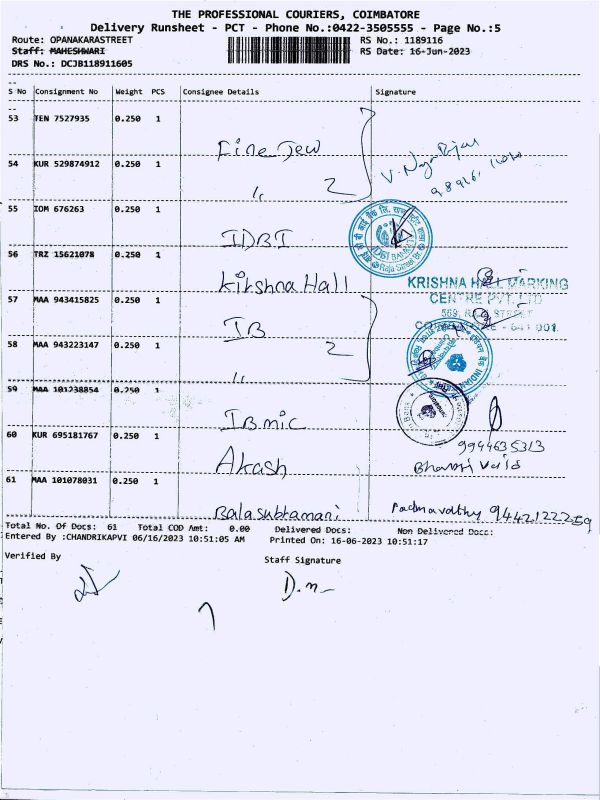 THE PROFESSIONAL COURIERS, COIMBATORE
Delivery Runsheet - PCT - Phone No.:0422-3505555 - Page No.:5
Route: OPANAKARASTREET RS No.: 1189116
Staff: MAHESHWARI RS Date: 16-Jun-2023
DRS No.: DCJB118911605
S No Consignment No Weight PCS Consignee Details Signature
53 TEN 7527935 0.250 1 Fine Jew
54 KUR 529874912 0.250 1 " 2
55 IOM 676263 0.250 1 IDBI
IDBI BANK
56 TRZ 15621078 0.250 1 Krishna Hall
KRISHNA HALL MARKING
CENTRE PVT. LTD
569, RAJA STREET
COIMBATORE - 641 001.
57 MAA 943415825 0.250 1 IB
58 MAA 943223147 0.250 1 " 2
59 MAA 101238854 0.250 1 IB mic
60 KUR 695181767 0.250 1 Akash
9944635313
61 MAA 101078031 0.250 1 Balasubramani Padmavathy 9442122259
Total No. Of Docs: 61 Total COD Amt: 0.00 Delivered Docs: Non Delivered Docs:
Entered By :CHANDRIKAPVI 06/16/2023 10:51:05 AM Printed On: 16-06-2023 10:51:17
Verified By Staff Signature